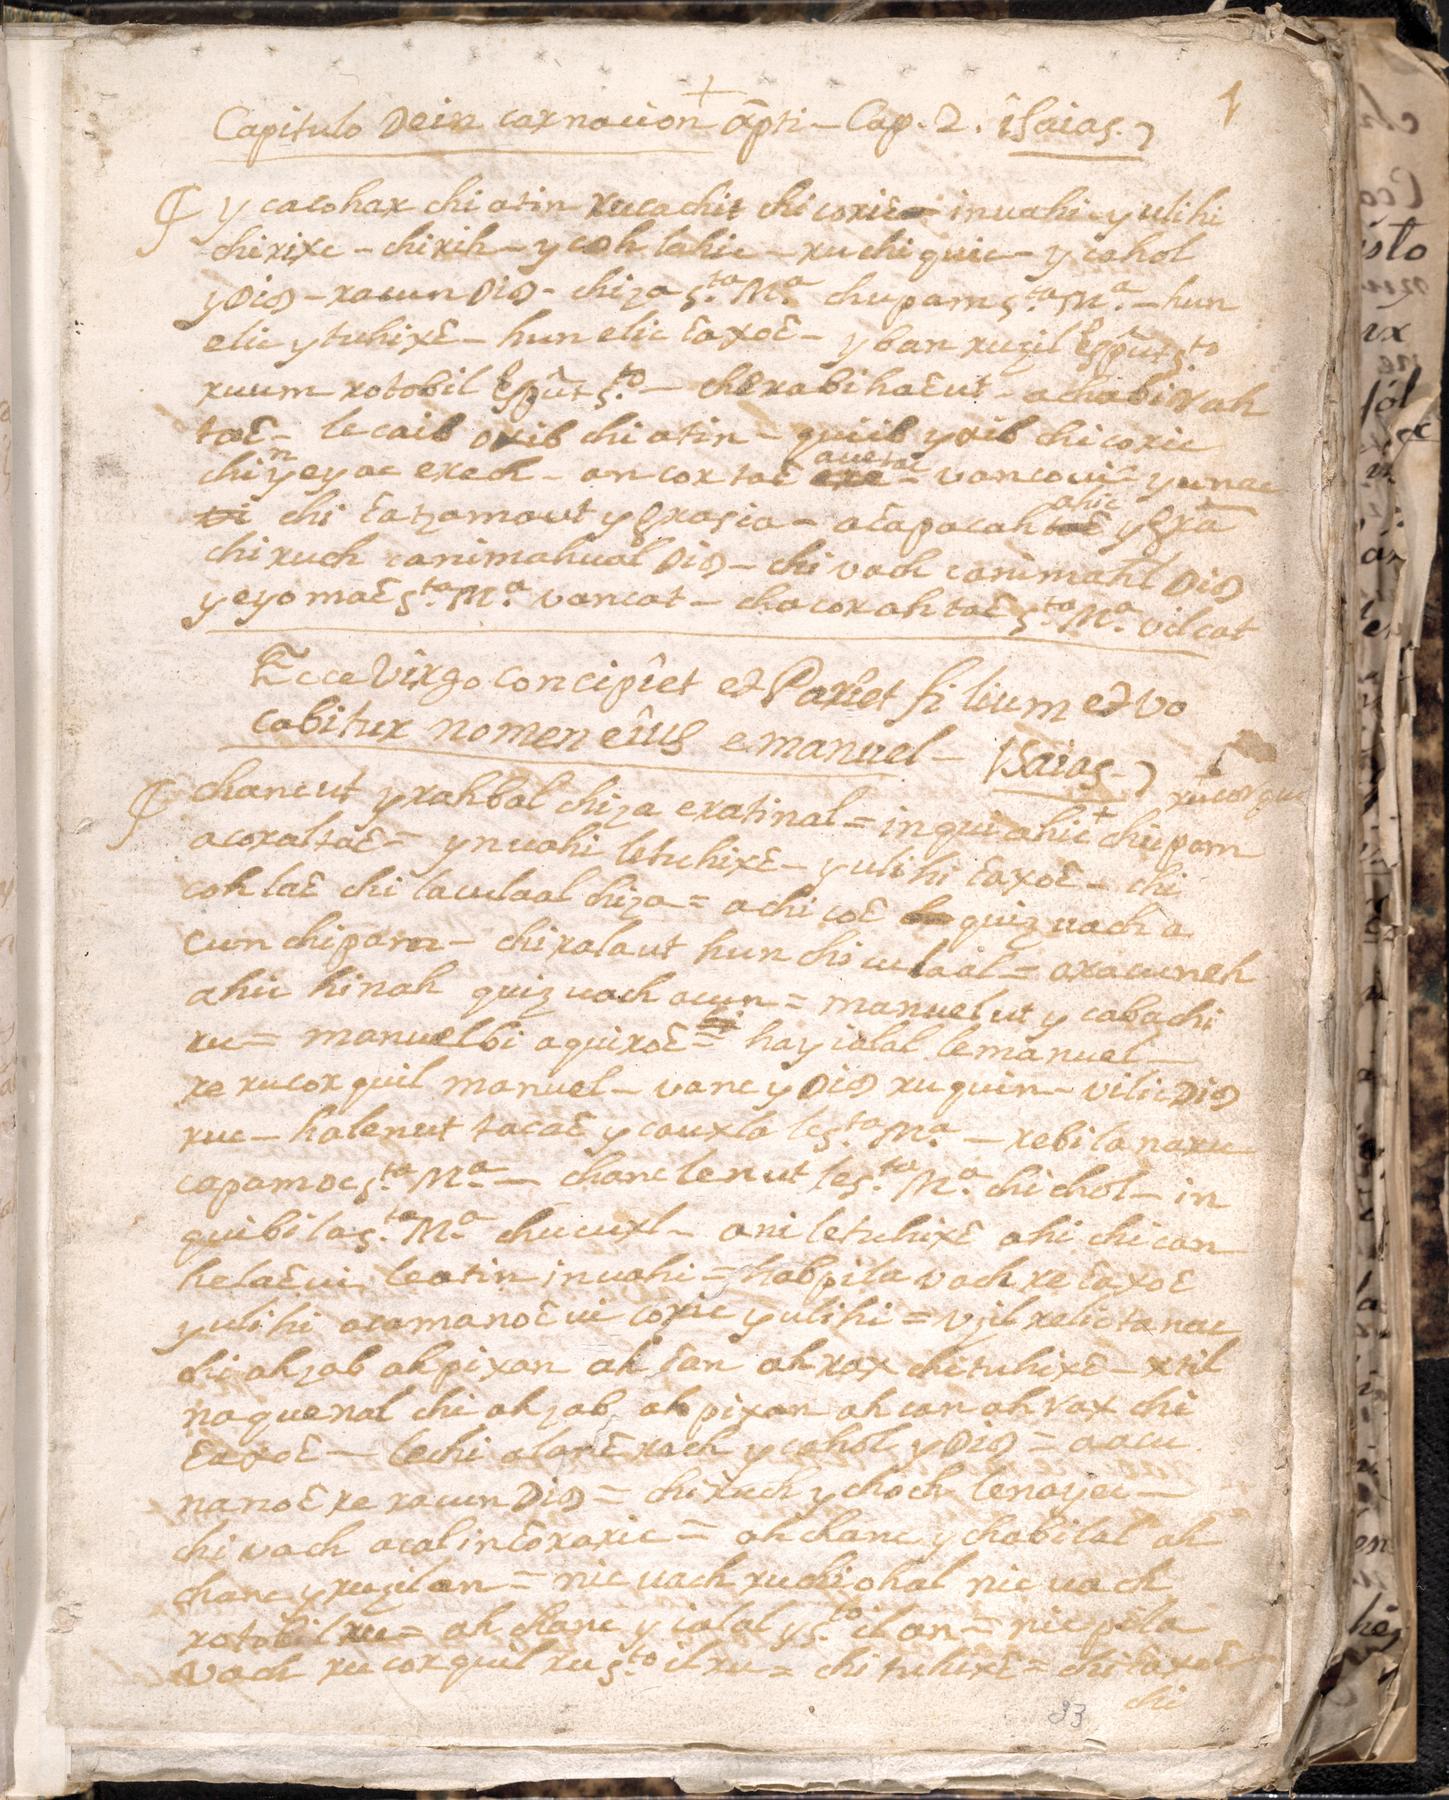 1
Capitulo Dein carnacion Xpti - Cap. 2. iSaias.
y cacohax chi atin xucachit chi coric = inuahi - y ulihi
chirixc - chirih - y coh lahic - xu chi quic - y cahol
y DiO - xacun DiO - chiza s.ta M.a chupam s.ta M.a - hun
elic y tuhixɛ - hun elic ɛaxoɛ - y ban ruzil Espūt s.to
ruum xotobil Espūt s.to - chexabihaɛut - achabi vah
taɛ - le caib oxib chi atin - quiib yxib chi coric
chi yeyac exech - an cor taɛ auetac - vancouic yunac
chi ɛatzamaut y gracia - aɛapacah ahic y gra
chi ruch ranimahual DiO - chi vach canimahl DiO
yeyomaɛ s.ta M.a vancat - chacorah taɛ s.ta M.a vilcat
Ecce Virgo concipiet et Pariet filium et vo
cabitur nomen eius emanuel - ISaias.
chancut yxahbal chiza exatinal = inqui ahic + chupam
+ xucorqui
acoraltaɛ = ynuahi letuhixɛ - y ulihi ɛaxoɛ - chi
coh laɛ chi laculaal chiza = achi coɛ quiz uach a
cun chipam - chiralaut hun chi culaal = axacuneh
ahic hinah quiz uach acun = manuel ut y cabachi
ru = manuel bi aquixoɛ = hay ialal lemanuel -
re rucorquil manuel - vanc y DiO ruquin - vilic DiO
ruc - halenut tacaɛ y cauxla le s.ta M.a - rebi lanaru
capamoc s.ta M.a - chanc lenut le s.ta M.a chi chol - in
quibi la s.ta M.a chucuxl - ani letuhixɛ ahi chi can
helaɛui leatin inuahi = habpila vach re ɛaxoɛ
y ulihi acamanoɛ ui coric y ulihi = vjil relic tanac
chi ahzab ah pixan ah ɛan ah rax chi tuhixɛ - xtil
naquenal chi ahzab ah pixan ah can ah vax chi
ɛaxoɛ - lechi alaxɛ xach y cahol y DiO = aacu
nanoɛ re racun DiO = chi ruch y choch lenayec -
chi vach acal inɛoraric = ah chanc y chabilal ah
chanc yruzilan = nic uach ruchiohal nic uach
xotobil ru = ah chanc y ialal y s.to ilan = nic pila
vach rucorquil ru s.to il ru = chi tuhixɛ = chi ɛaxoɛ
chi
33